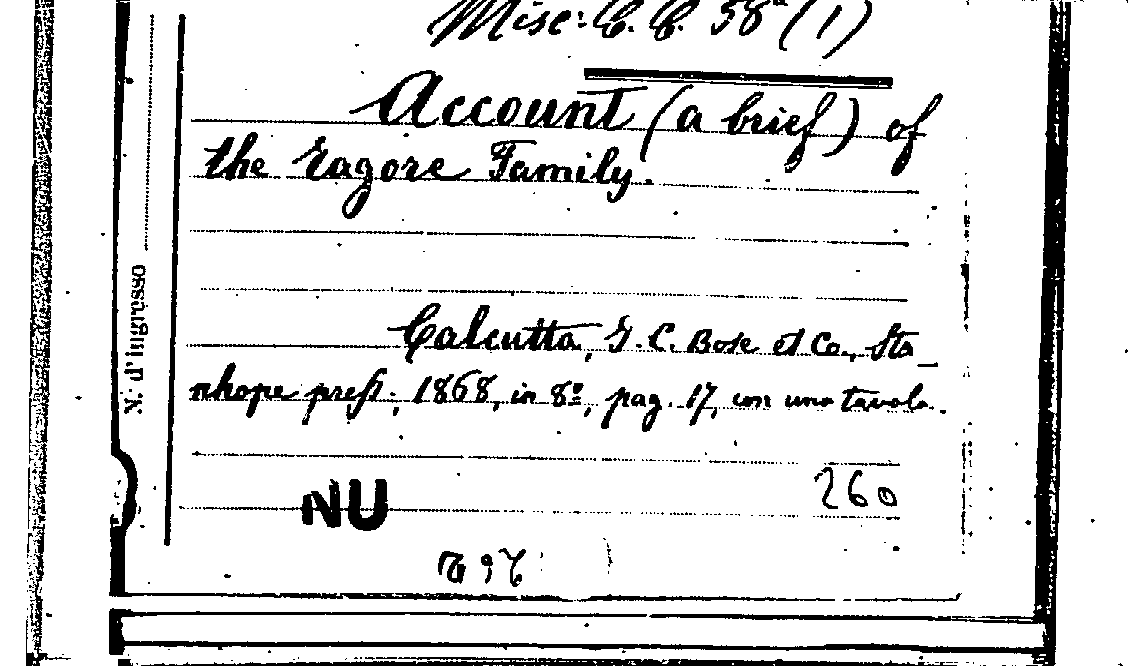 Misc: C. C. 58ª (1)
Account (a brief) of
the Tagore Family.
N.º d'ingresso
Calcutta, I. C. Bose et Co., Sta_
nhope press:, 1868, in 8º, pag. 17, con una tavola.
NU
260